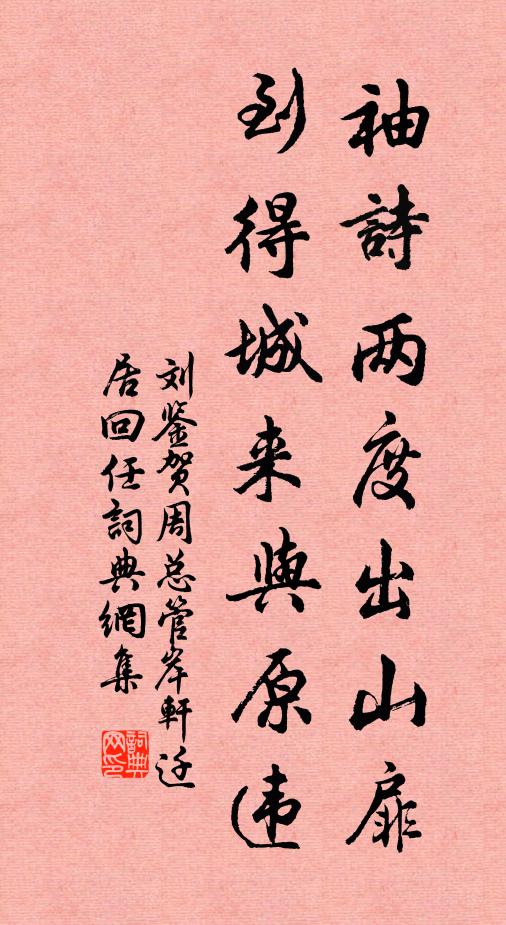 袖詩两度出山扉
到得城来與原违
刘鉴贺周总管岸軒迁
居回任詞典網集
詞典网印